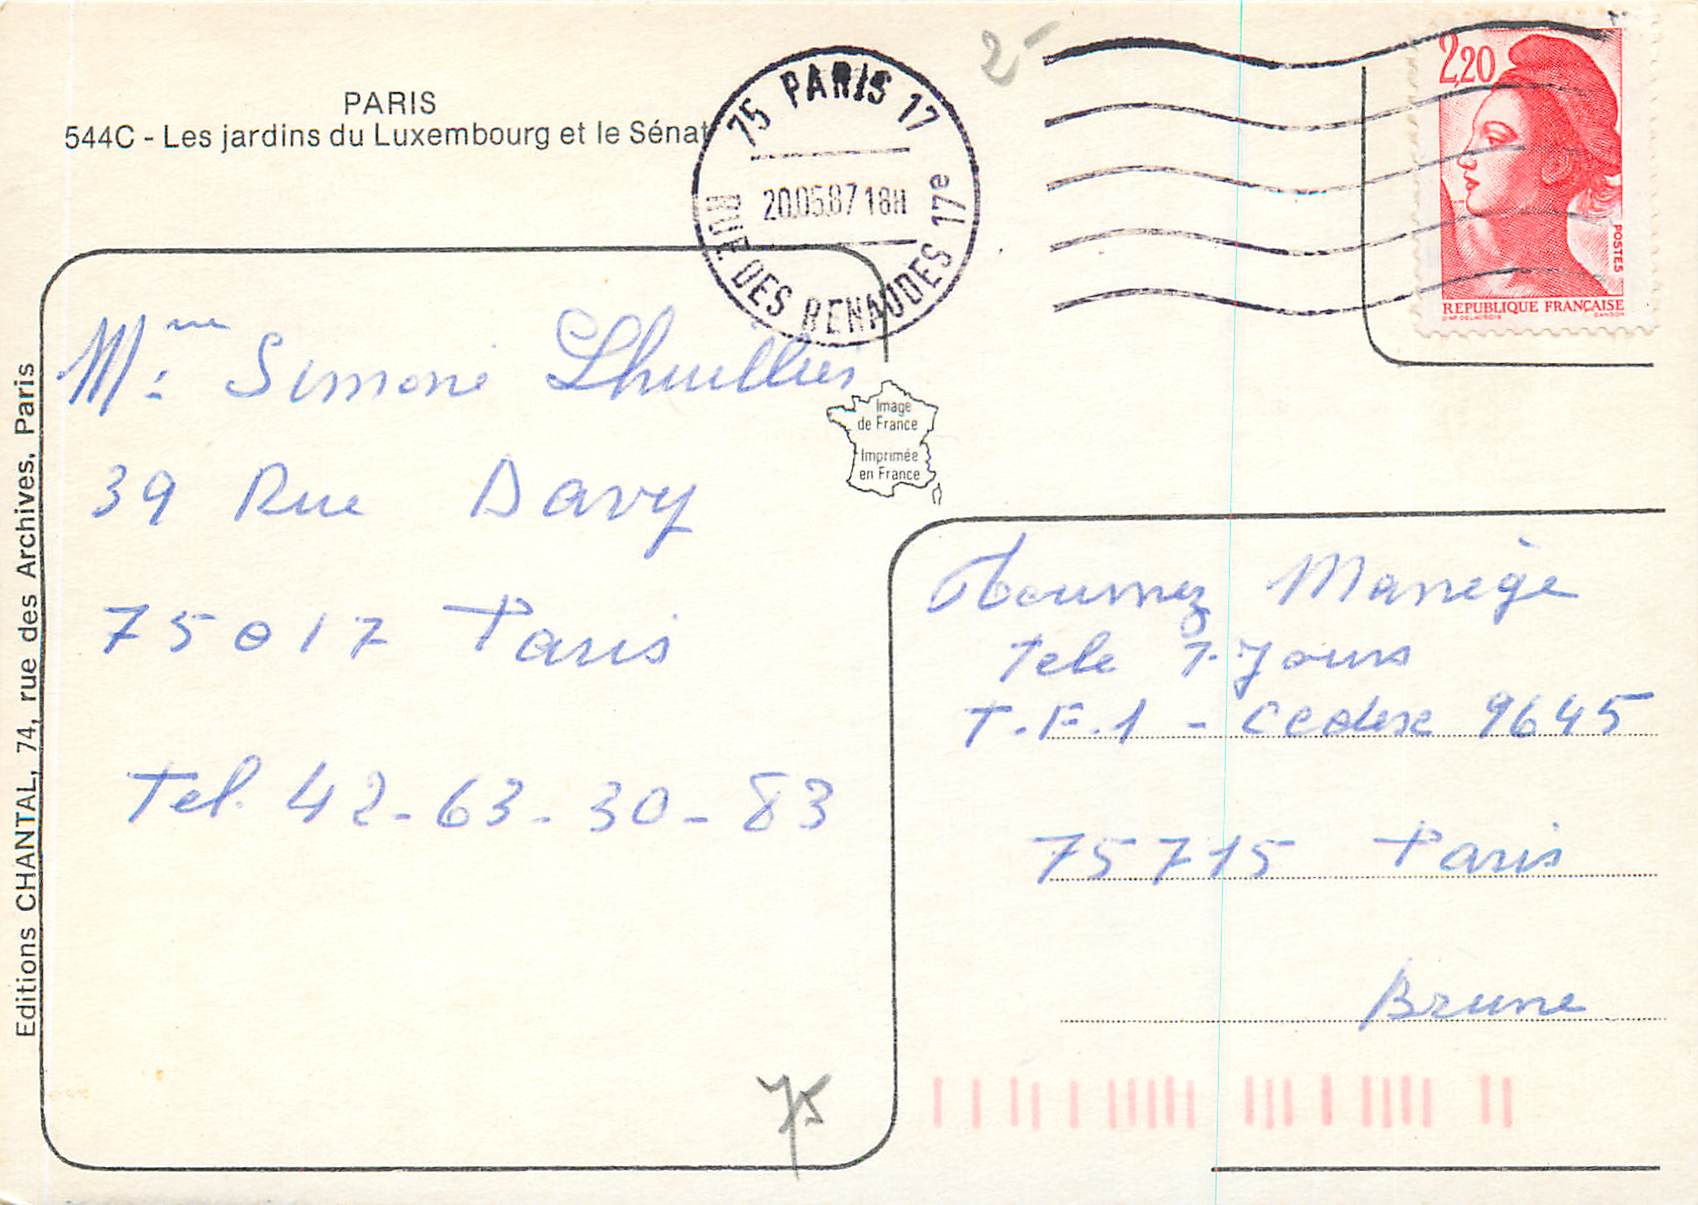 PARIS
544C - Les jardins du Luxembourg et le Sénat
75 PARIS 17
20.05.87 18H
RUE DES RENAUDES 17e
2-
2,20
POSTES
REPUBLIQUE FRANÇAISE
Mme Simone Lhuillier
39 Rue Davy
75017 Paris
Tel. 42-63-30-83
Image
de France
Imprimée
en France
Tournez Manège
Tele 7-Jours
T.F.1 - Cedex 9645
75715 Paris
Brune
75
Editions CHANTAL, 74, rue des Archives, Paris